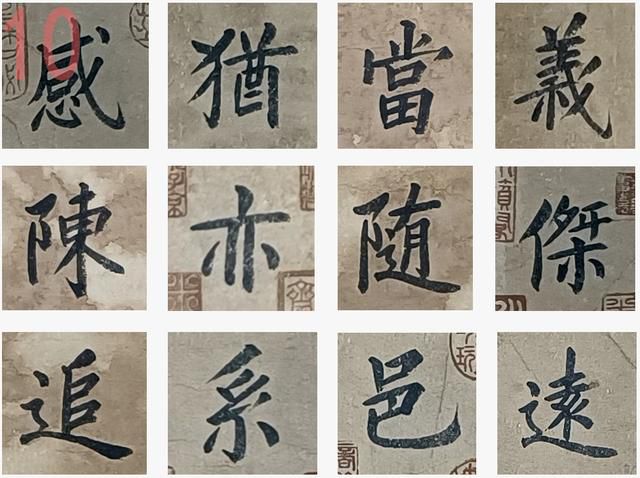 10
感猶當義
陳亦随傑
追系邑遠